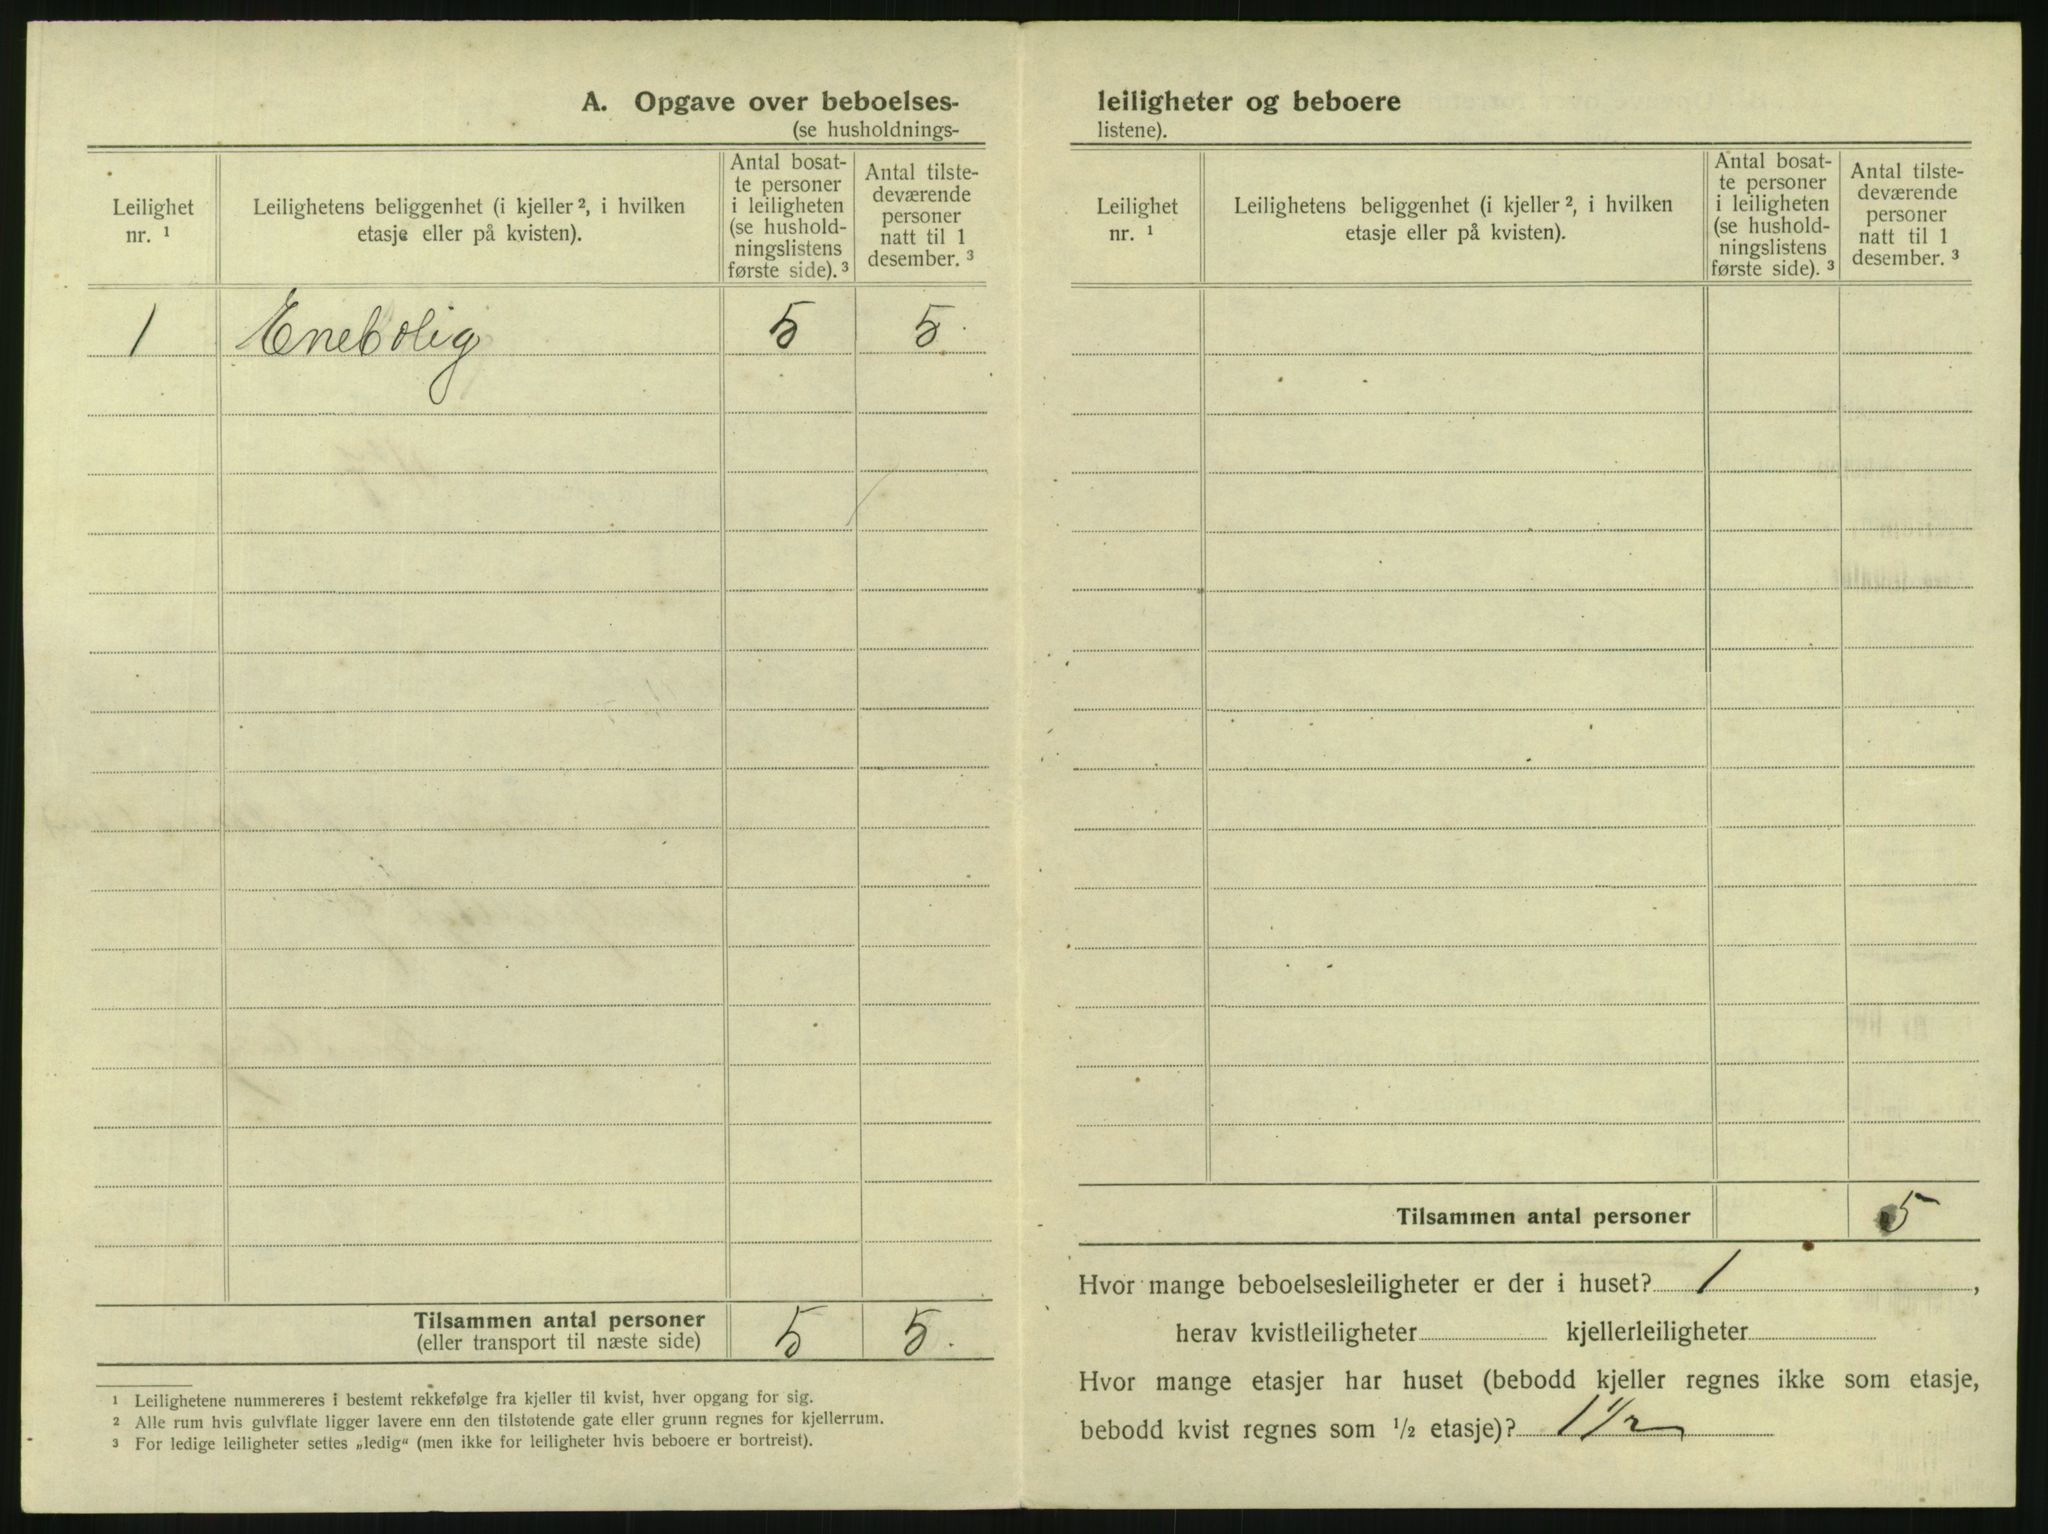 A. Opgave over beboelses-
(se husholdnings-
Leilighet
nr. ¹
Leilighetens beliggenhet (i kjeller ², i hvilken
etasje eller på kvisten).
Antal bosat-
te personer
i leiligheten
(se hushold-
ningslistens
første side). ³
Antal tilste-
deværende
personer
natt til 1
desember. ³
1 Enebolig 5 5
Tilsammen antal personer 5 5.
(eller transport til næste side)
¹ Leilighetene nummereres i bestemt rekkefølge fra kjeller til kvist, hver opgang for sig.
² Alle rum hvis gulvflate ligger lavere enn den tilstøtende gate eller grunn regnes for kjellerrum.
³ For ledige leiligheter settes „ledig“ (men ikke for leiligheter hvis beboere er bortreist).
leiligheter og beboere
listene).
Leilighet
nr. ¹
Leilighetens beliggenhet (i kjeller ², i hvilken
etasje eller på kvisten).
Antal bosat-
te personer
i leiligheten
(se hushold-
ningslistens
første side). ³
Antal tilste-
deværende
personer
natt til 1
desember. ³
Tilsammen antal personer 5
Hvor mange beboelsesleiligheter er der i huset? 1,
herav kvistleiligheter kjellerleiligheter
Hvor mange etasjer har huset (bebodd kjeller regnes ikke som etasje,
bebodd kvist regnes som ½ etasje)? 1 ½